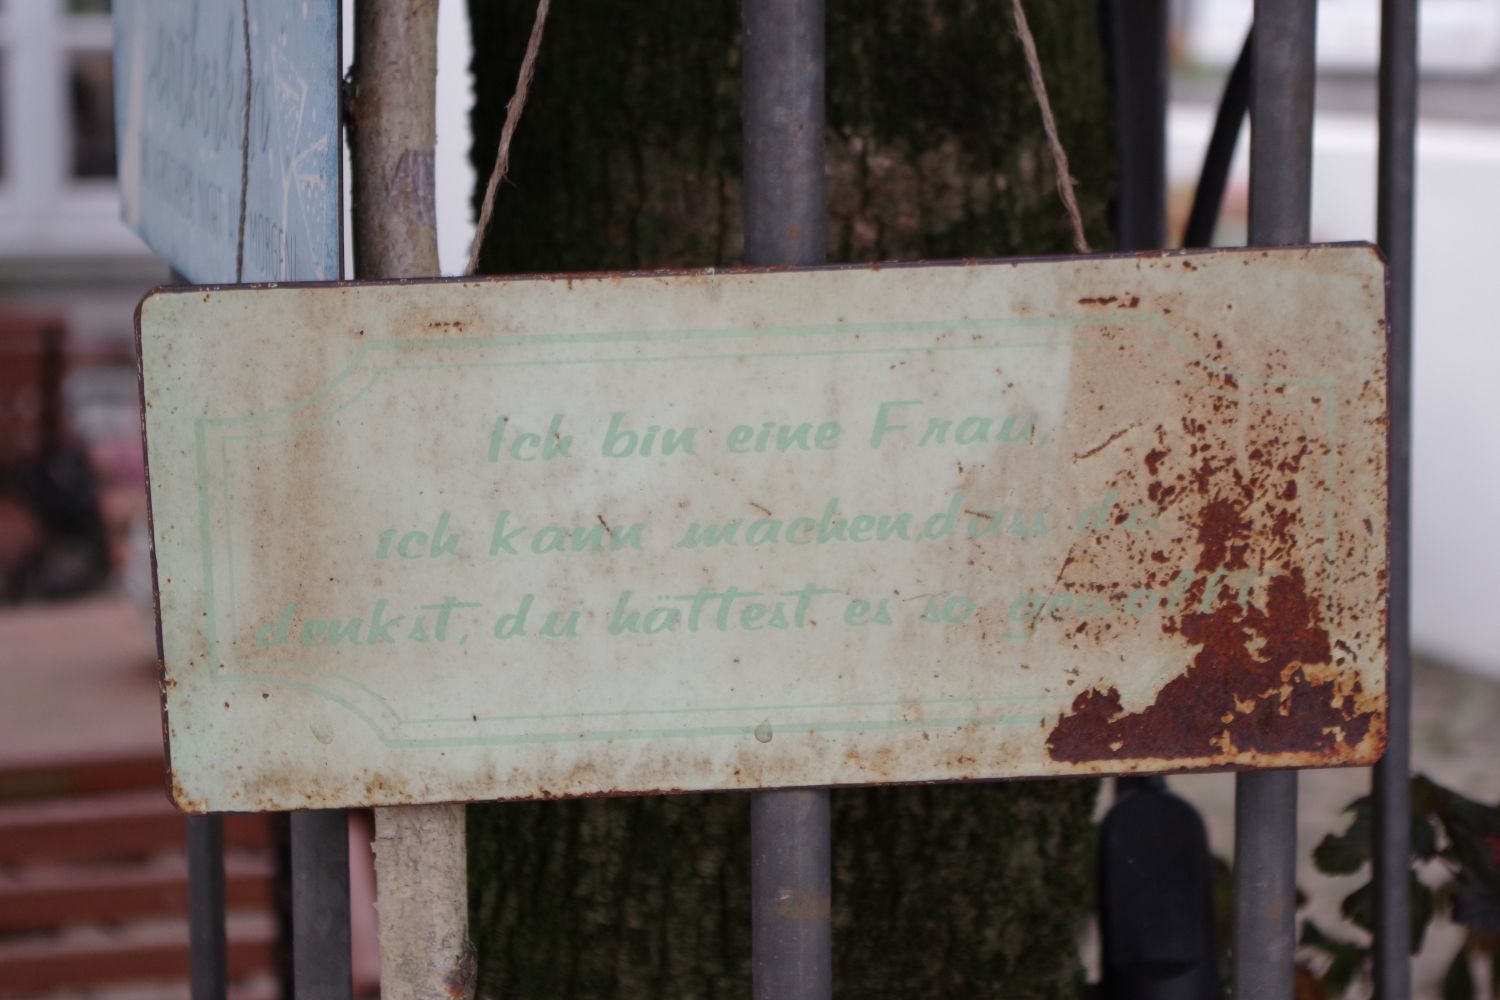 Ich bin eine Frau,
ich kann machen, dass du
denkst, du hättest es so gewollt